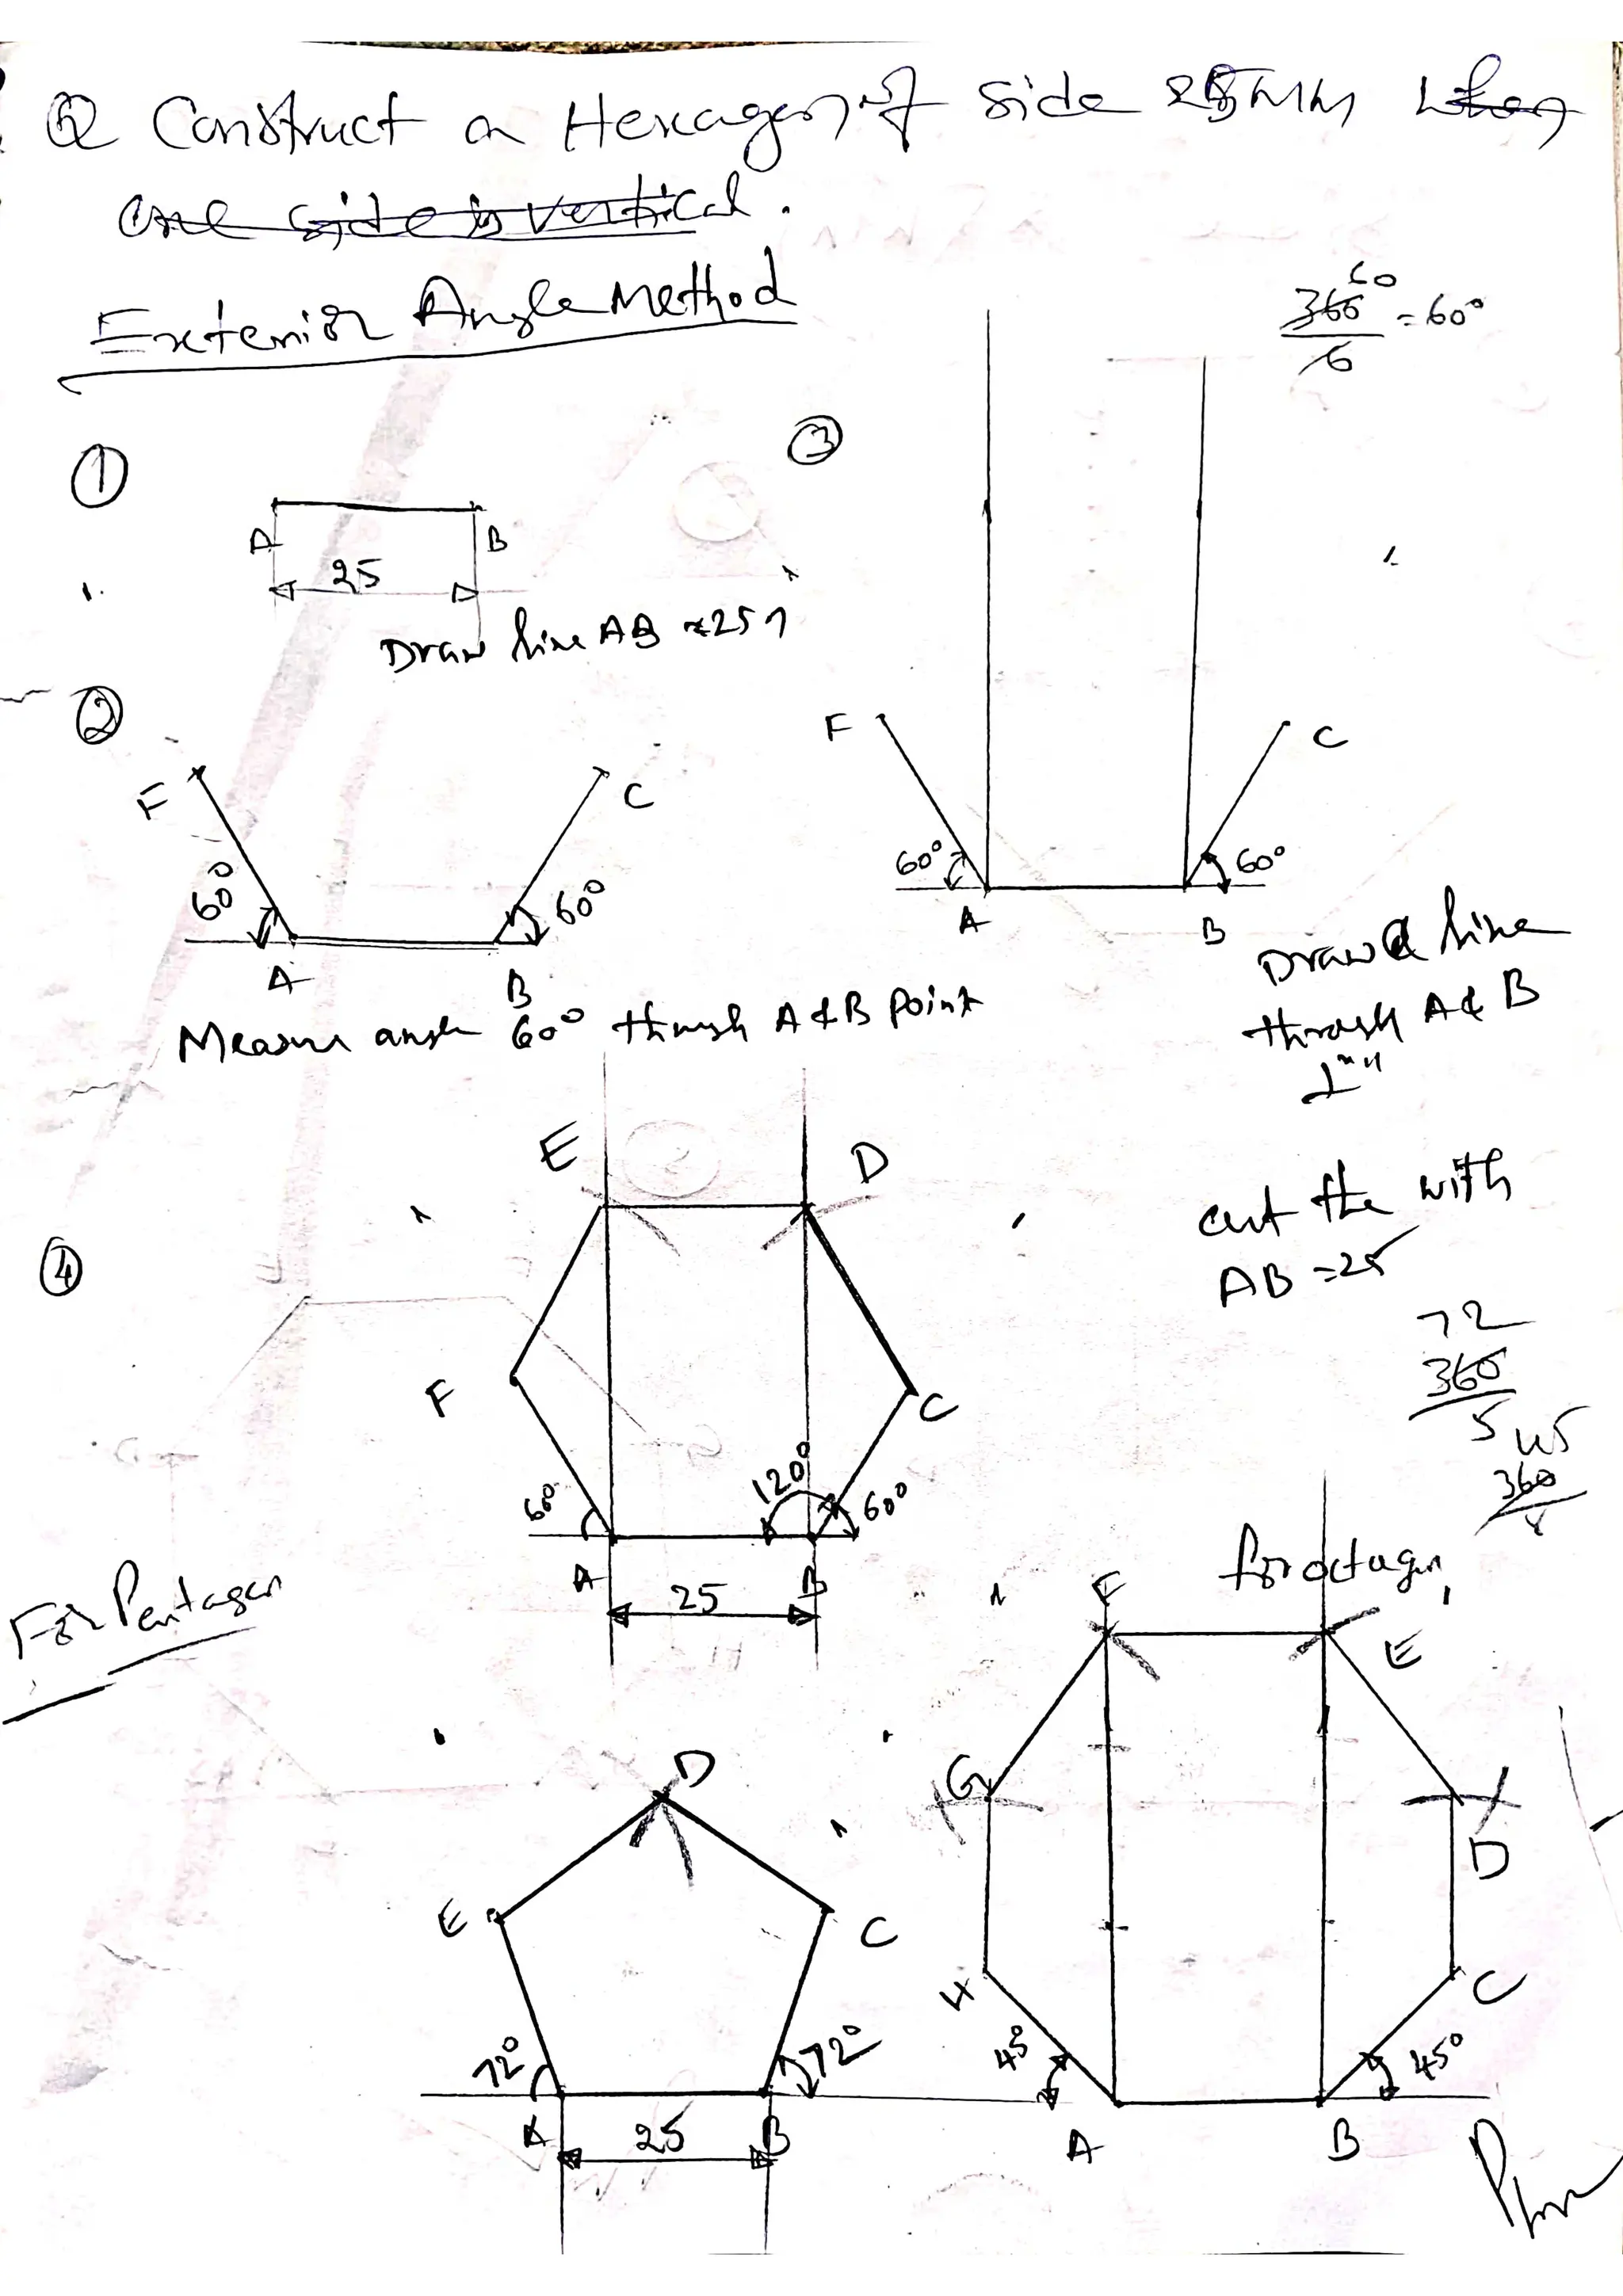 Q Construct an Hexagon of side 25mm when
one side is vertical.
Exterior Angle Method
60
360 = 60°
6
①
A B
25
Draw line AB = 25
②
F C
60° 60°
A B
Measure angle 60° through A & B Point
③
F C
60° 60°
A B
Draw a line
through A & B
④
E D
F C
60° 120° 60°
A B
25
cut the with
AB = 25
72
360
5
45
360
8
For Pentagon
D
E C
72° 72°
A B
25
for octagon
F E
G D
H C
45° 45°
A B